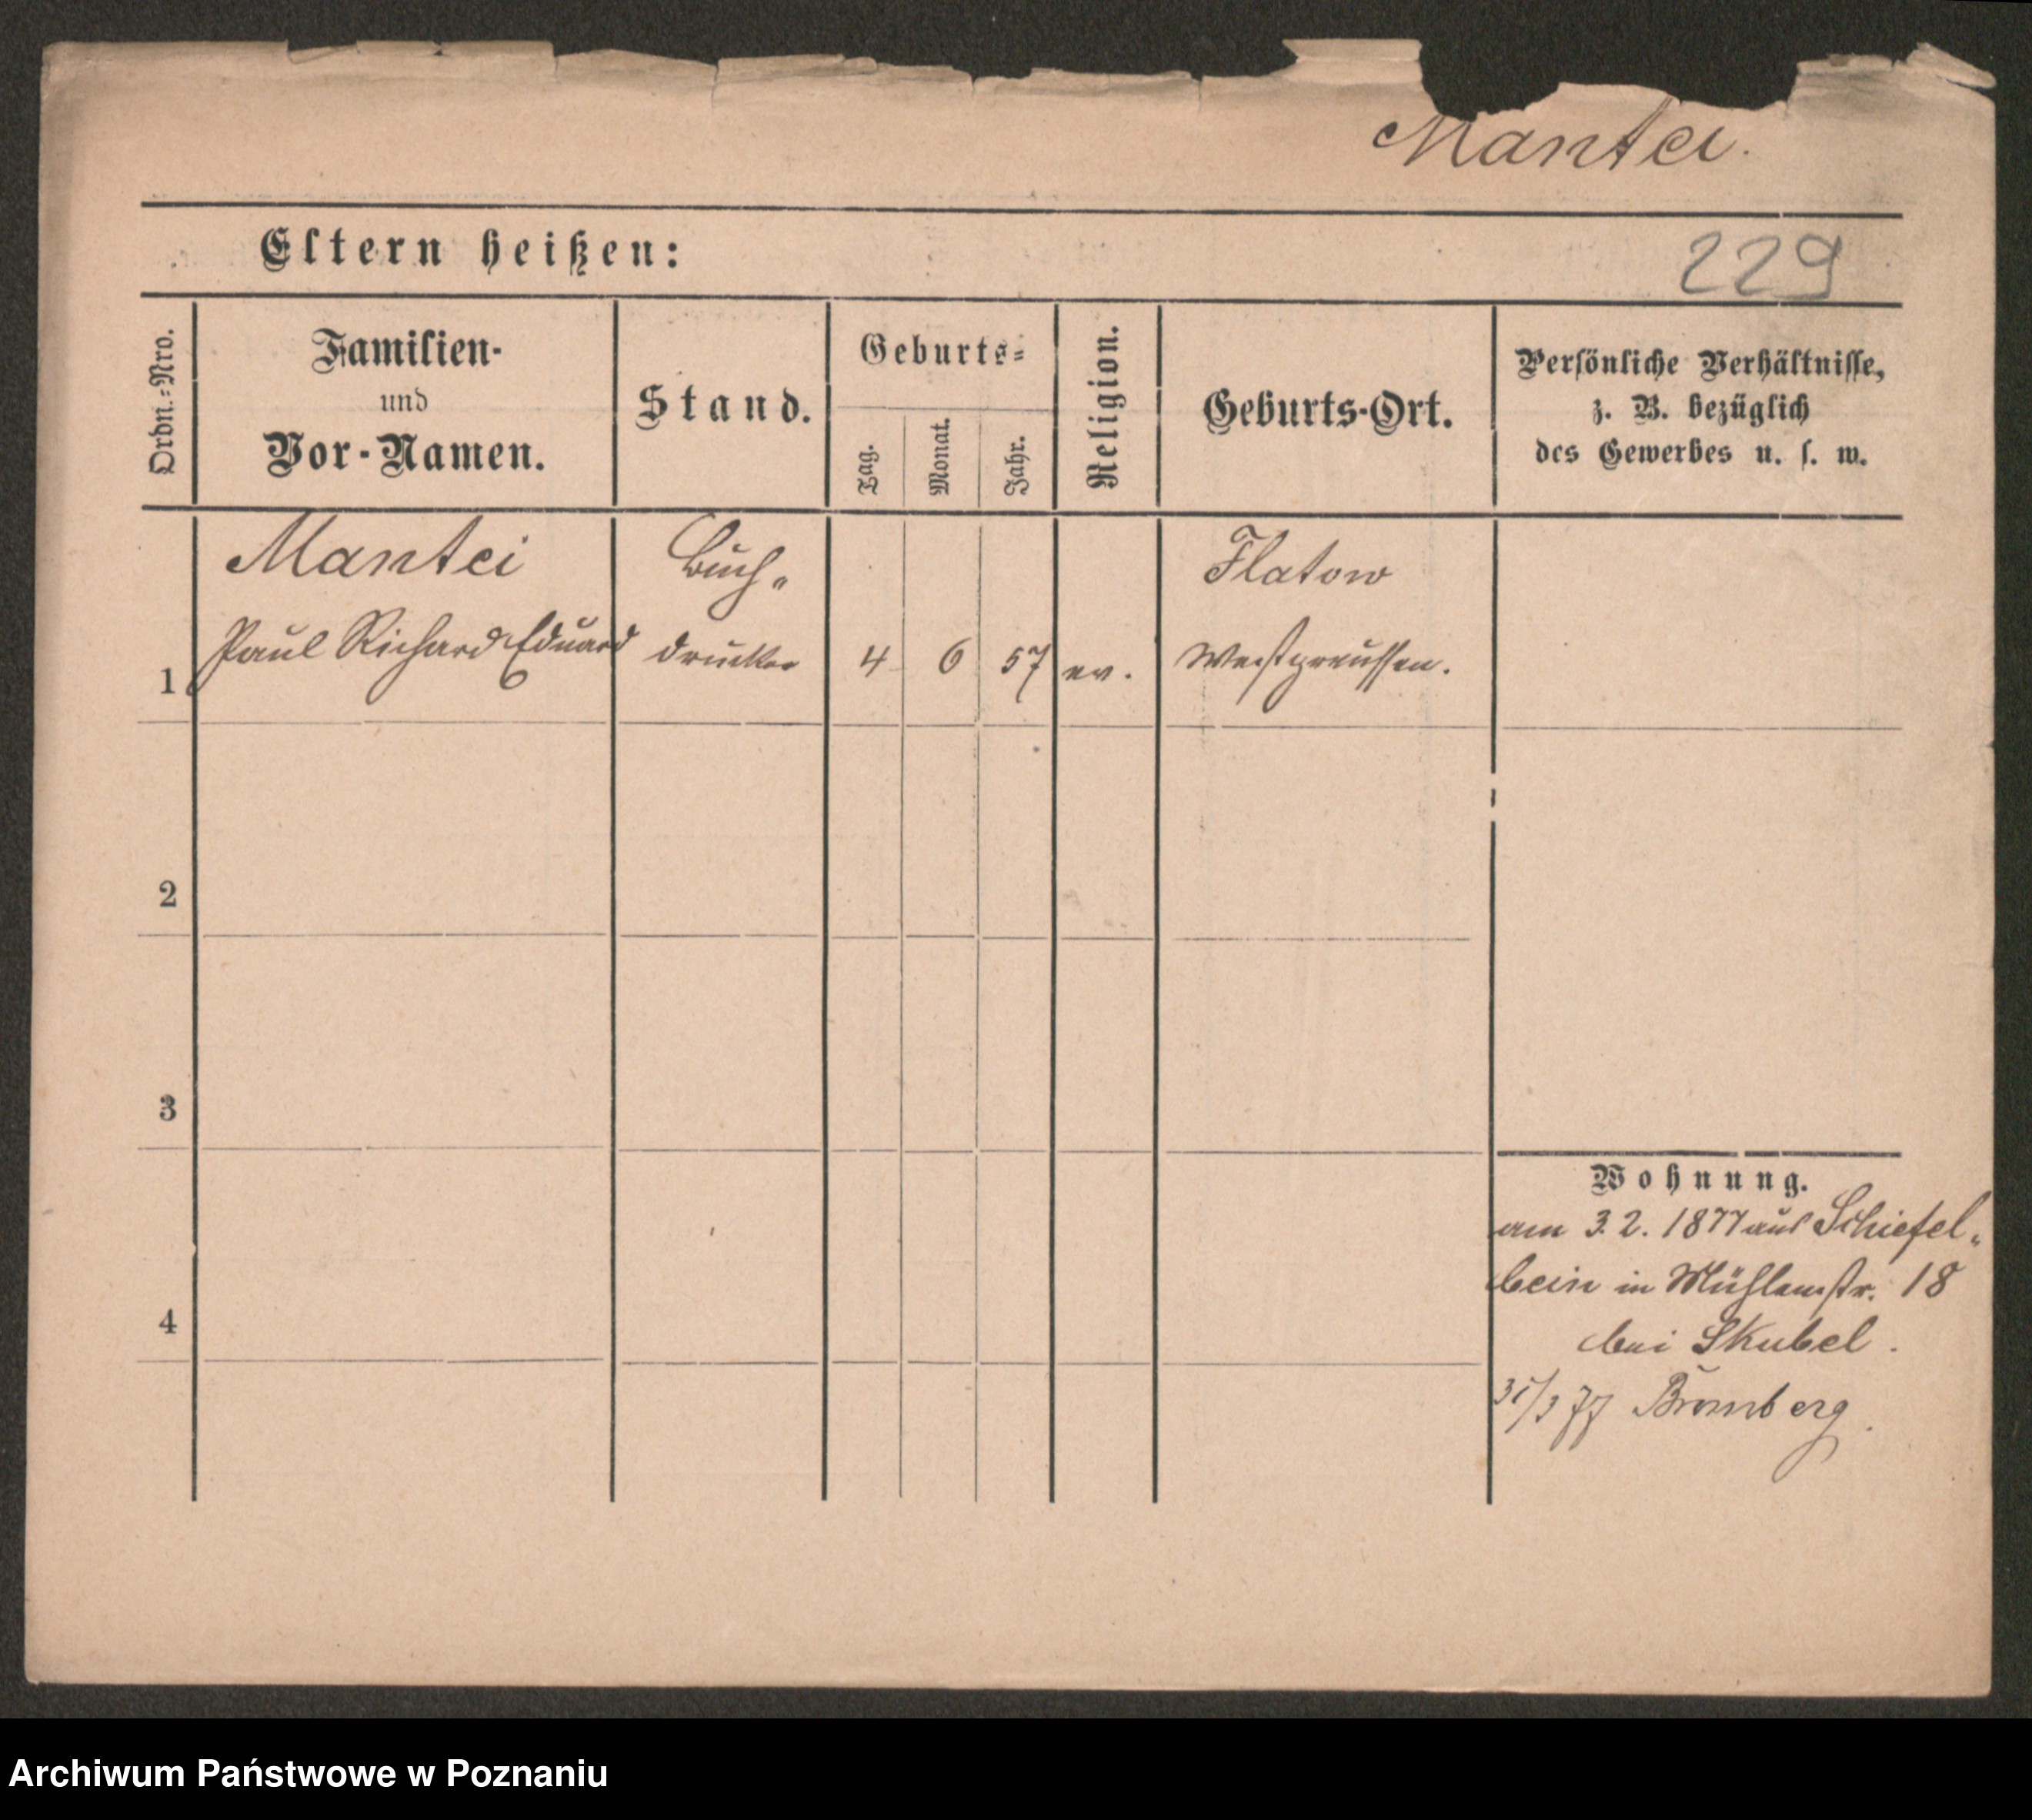 Mantei.
Eltern heißen:
229
Ordn.-Nro.
Familien-
und
Vor-Namen.
Stand.
Geburts-
Tag.
Monat.
Jahr.
Religion.
Geburts-Ort.
Persönliche Verhältnisse,
z. B. bezüglich
des Gewerbes u. s. w.
Mantei Buch- Flatow
1 Paul Richard Eduard drucker 4 6 57 ev. Westpreussen.
2
3
4
Wohnung.
am 3. 2. 1877 aus Schiefel-
bein in Mühlenstr. 18
bei Skubel.
31/3 77 Bromberg.
Archiwum Państwowe w Poznaniu